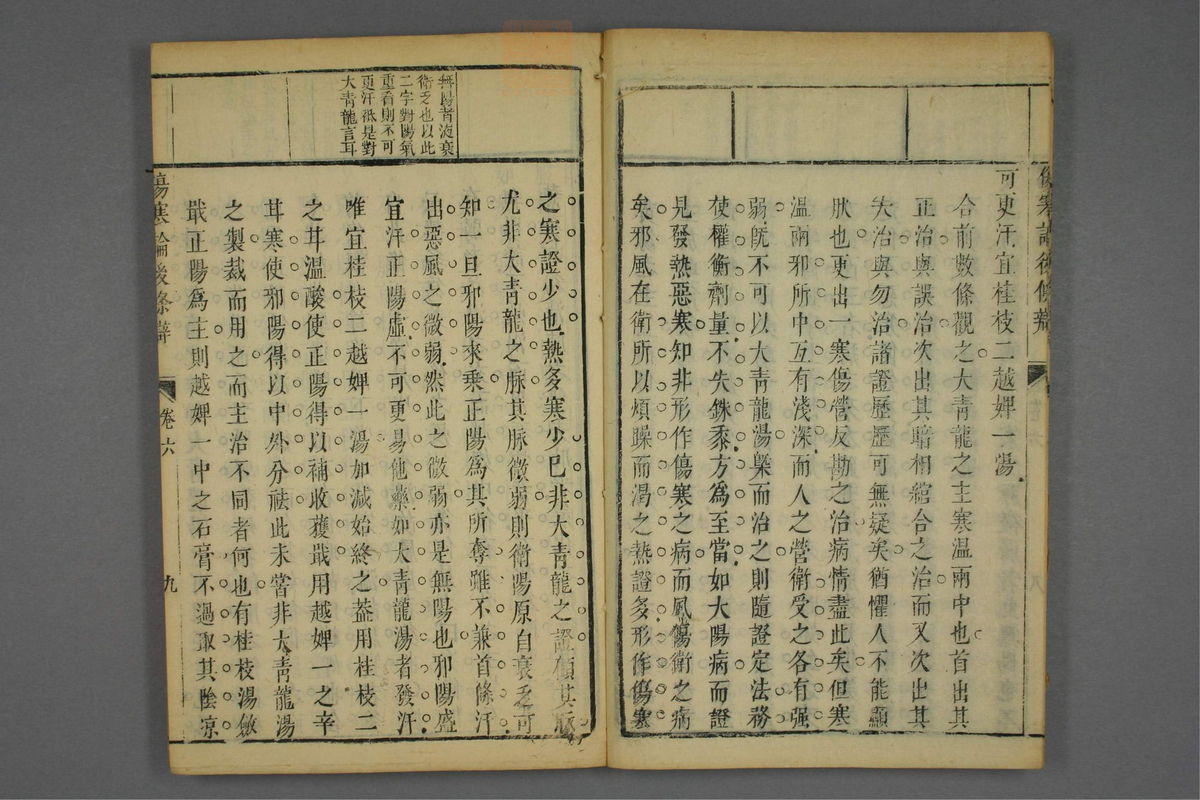 傷寒論後條辯
可更汗宜桂枝二越婢一湯
合前數條觀之大青龍之主寒溫兩中也首出其
正治與誤治次出其暗相綰合之治而又次出其
失治與勿治諸證歷歷可無疑矣猶懼人不能顯
狀也更出一寒傷營反勘之治病情盡此矣但寒
溫兩邪所中互有淺深而人之營衛受之各有强
弱旣不可以大青龍湯槩而治之則隨證定法務
使權衡劑量不失銖黍方爲至當如大陽病而證
見發熱惡寒知非形作傷寒之病而風傷衛之病
矣邪風在衛所以煩躁而渴之熱證多形作傷寒
之寒證少也熱多寒少已非大青龍之證顧其脈
尤非大青龍之脈其脈微弱則衛陽原自衰乏可
知一旦邪陽來乘正陽爲其所奪雖不兼首條汗
出惡風之微弱然此之微弱亦是無陽也邪陽盛
宜汗正陽虛不可更易他藥如大青龍湯者發汗
唯宜桂枝二越婢一湯加減始終之葢用桂枝二
之甘溫酸使正陽得以補收蓯戢用越婢一之辛
甘寒使邪陽得以中外分祛此未嘗非大青龍湯
之製裁而用之而主治不同者何也有桂枝湯斂
戢正陽爲主則越婢一中之石膏不過取其陰凉
無陽者液衰
衛乏也以此
二字對陽氣
重看則不可
更汗祇是對
大青龍言耳
傷寒論後條辯
卷六
九